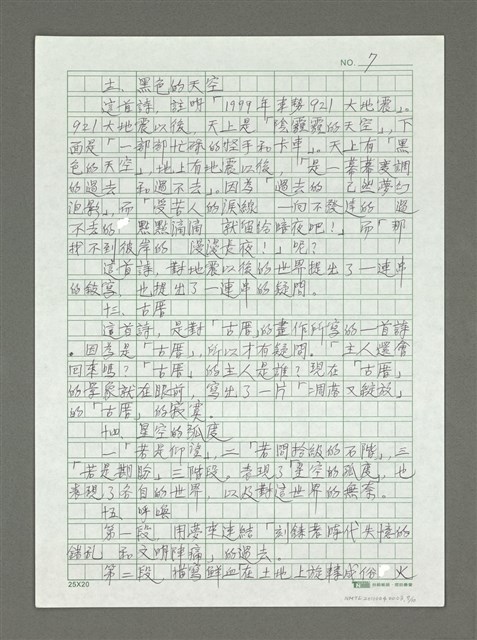 NO. 7
十二、黑色的天空
這首詩，註明「1999年車勢921大地震」。
921大地震以後，天上是「陰霾霾的天空」，下
面是「一部部忙碌的怪手和卡車」。天上有「黑
色的天空」，地上有地震以後，「是一幕幕變調
的過去 和過不去」。因為「過去的 已然夢幻
泡影」，而「受苦人的淚線 一向不發達的 過
不去的 點點滴滴 就留給暗夜吧！」而「那
找不到彼岸的 漫漫長夜！」呢？
這首詩，對地震以後的世界提出了一連串
的敘寫，也提出了一連串的疑問。
十三、古厝
這首詩，是對「古厝」的畫作所寫的一首詩
。因為是「古厝」，所以才有疑問。「主人還會
回來嗎？「古厝」的主人是誰？現在「古厝」
的景象就在眼前，寫出了一片「凋落又綻放」
的「古厝」的寂寞。
十四、星空的弧度
一「若是仰望」，二「若問拾級的石階」，三
「若是斟酌」三階段。表現了「星空的弧度」，也
表現了各自的世界，以及對這世界的無奈。
十五、呼喚
第一段，用夢來連結「刻鏤著時代失憶的
錯亂 和文明陣痛」的過去。
第二段，描寫鮮血在土地上旋轉成俗 火
25X20